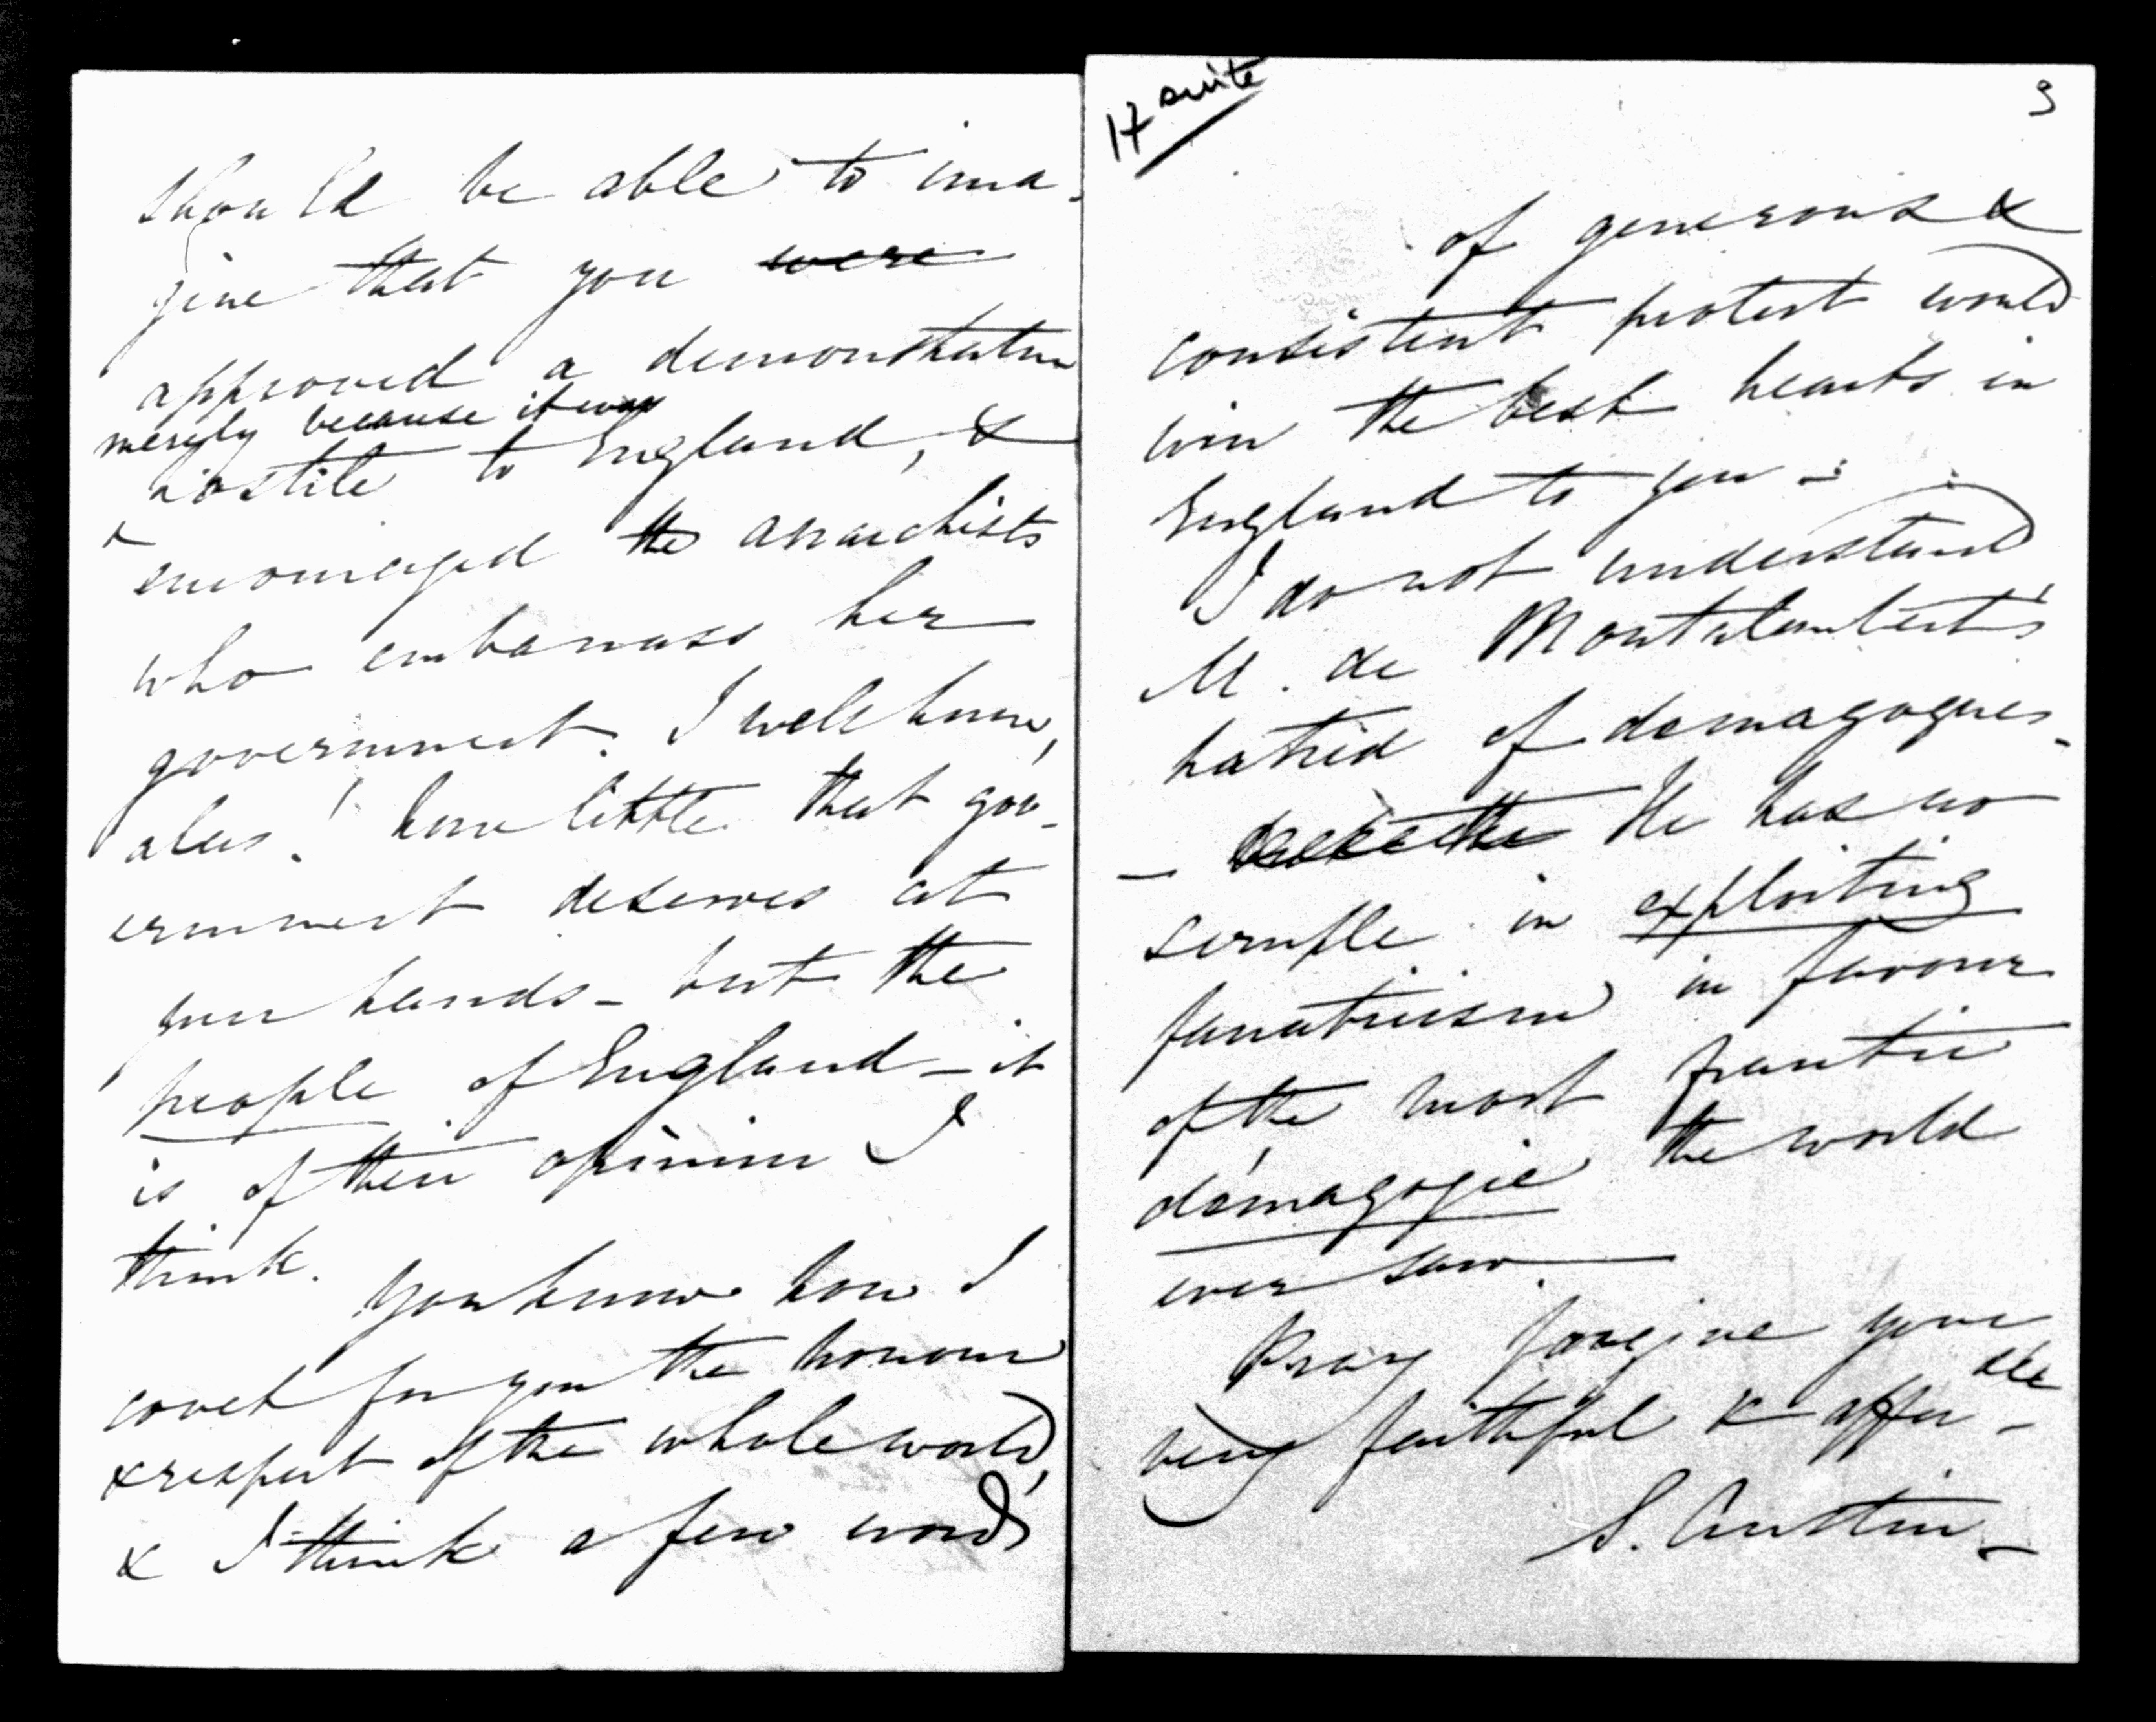 should be able to ima-
gine that you were
approved a demonstration
merely because it was
hostile to England, &
encouraged the anarchists
who embarrass her
government. I well know,
alas! how little that gov-
ernment deserves at
your hands - but the
people of England - it
is of their opinion I
think.
You know how I
covet for you the honour
& respect of the whole world,
& I think a few words
17 suite
3
of generous &
consistent protest would
win the best hearts in
England to you -
I do not understand
M. de Montalembert's
hatred of demagogues -
- He has no
scruple in exploiting
fanaticism in favour
of the most frantic
démagogie the world
ever saw.
Pray forgive your
very faithful & affec-
ate
S. Austin -